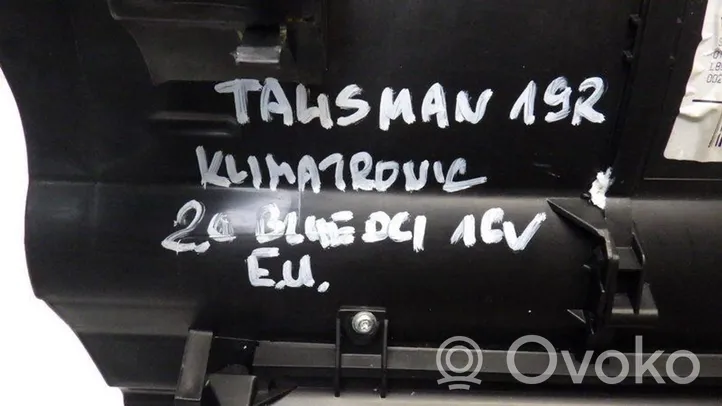 TALISMAN 19R
KLIMATRONIC
2.0 BLUE DCI 16V
E.U.
Ovoko